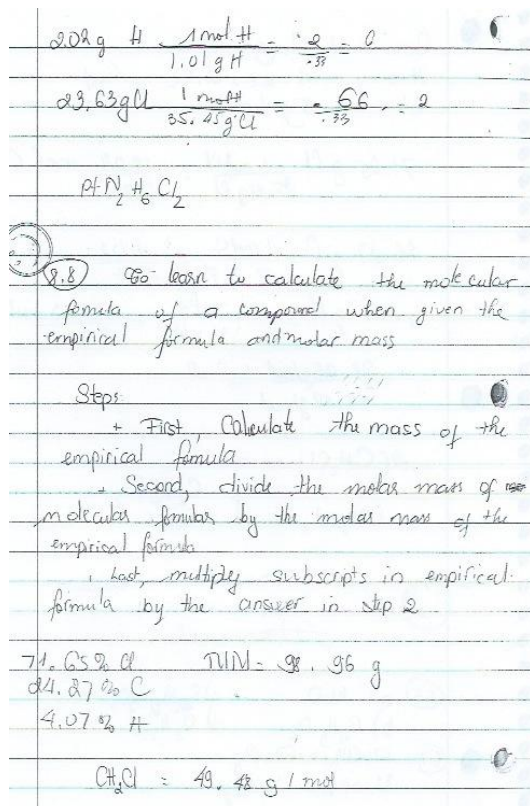 2.02 g H 1 mol H / 1.01 g H = 2 / .33 = 6
23,63 g Cl 1 mol / 35.45 g Cl = .66 / .33 = 2
PtN₂H₆Cl₂
8.8 To learn to calculate the molecular
fomula of a compound when given the
empirical formula and molar mass
Steps
+ First, Calculate the mass of the
empirical fomula
+ Second, divide the molar mass of
molecular fomular by the molar mass of the
empirical formula
, Last, multiply subscripts in empirical
formula by the answer in step 2
71.65% Cl = 98.96 g
24.27% C
4.07% H
CH₂Cl = 49.48 g / mol